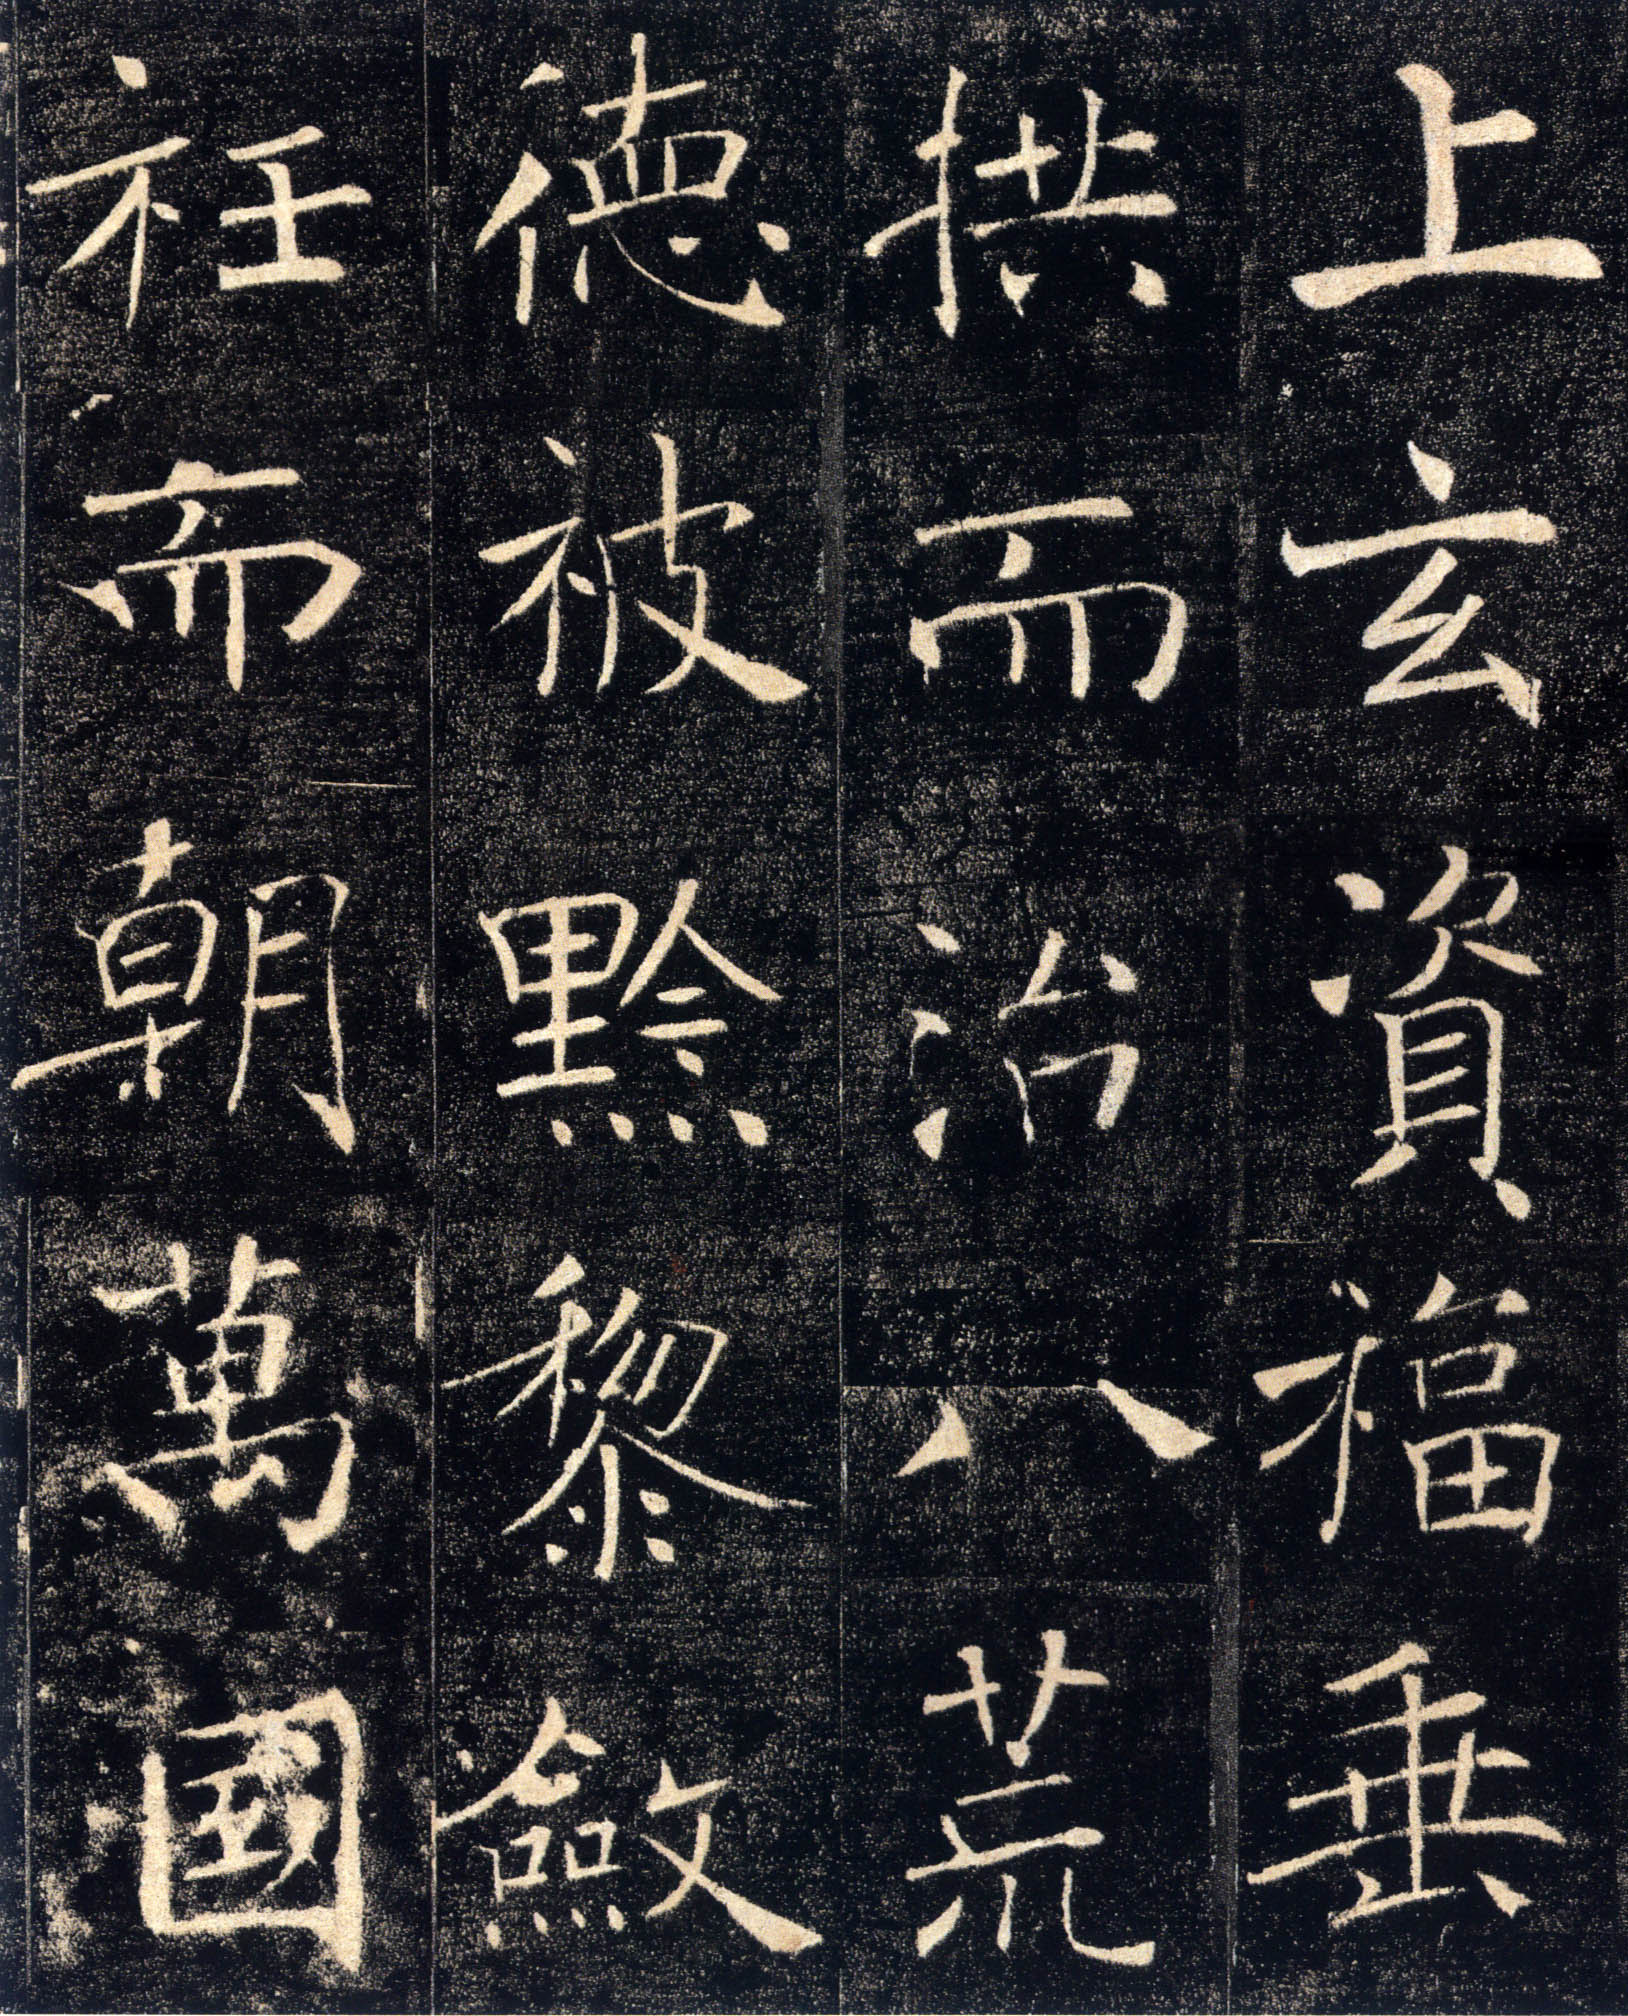 上玄資福垂
拱而治八荒
德被黔黎斂
衽而朝萬國